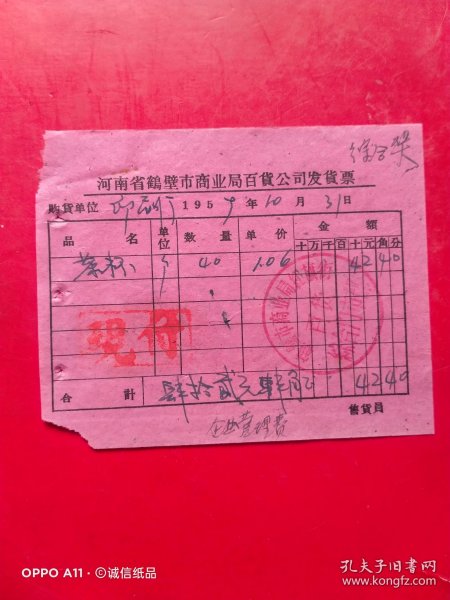 河南省鶴壁市商业局百貨公司发货票
購貨单位 印刷厂 1959年10月31日
品名 单位 数量 单价 金額
十 万 千 百 十 元 角 分
茶杯 个 40 1.06 42 40
现付
合計 肆拾贰元肆角 42 40
售貨員
企业管理費
OPPO A11 · ©诚信纸品
孔夫子旧书网
www.kongfz.com